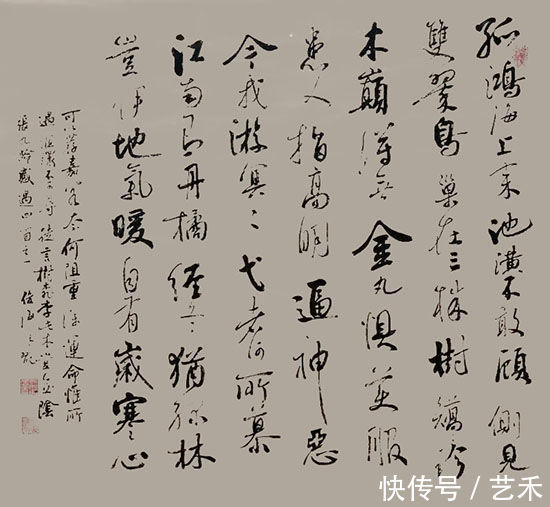 孤鴻海上來池潢不敢顧側見
雙翠鳥巢在三株樹矯矯珍
木巔得無金丸懼美服
患人指高明逼神惡
今我游冥〻弋者何所慕
江南有丹橘經冬猶綠林
豈伊地氣暖自有歲寒心
可以薦嘉客奈何阻重深運命惟所
遇循環不可尋徒言樹桃李此木豈無陰
張九齡感遇四首之
快传号 / 艺禾